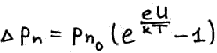 Δ Pn = Pn₀ (e^(eU/kT) - 1)